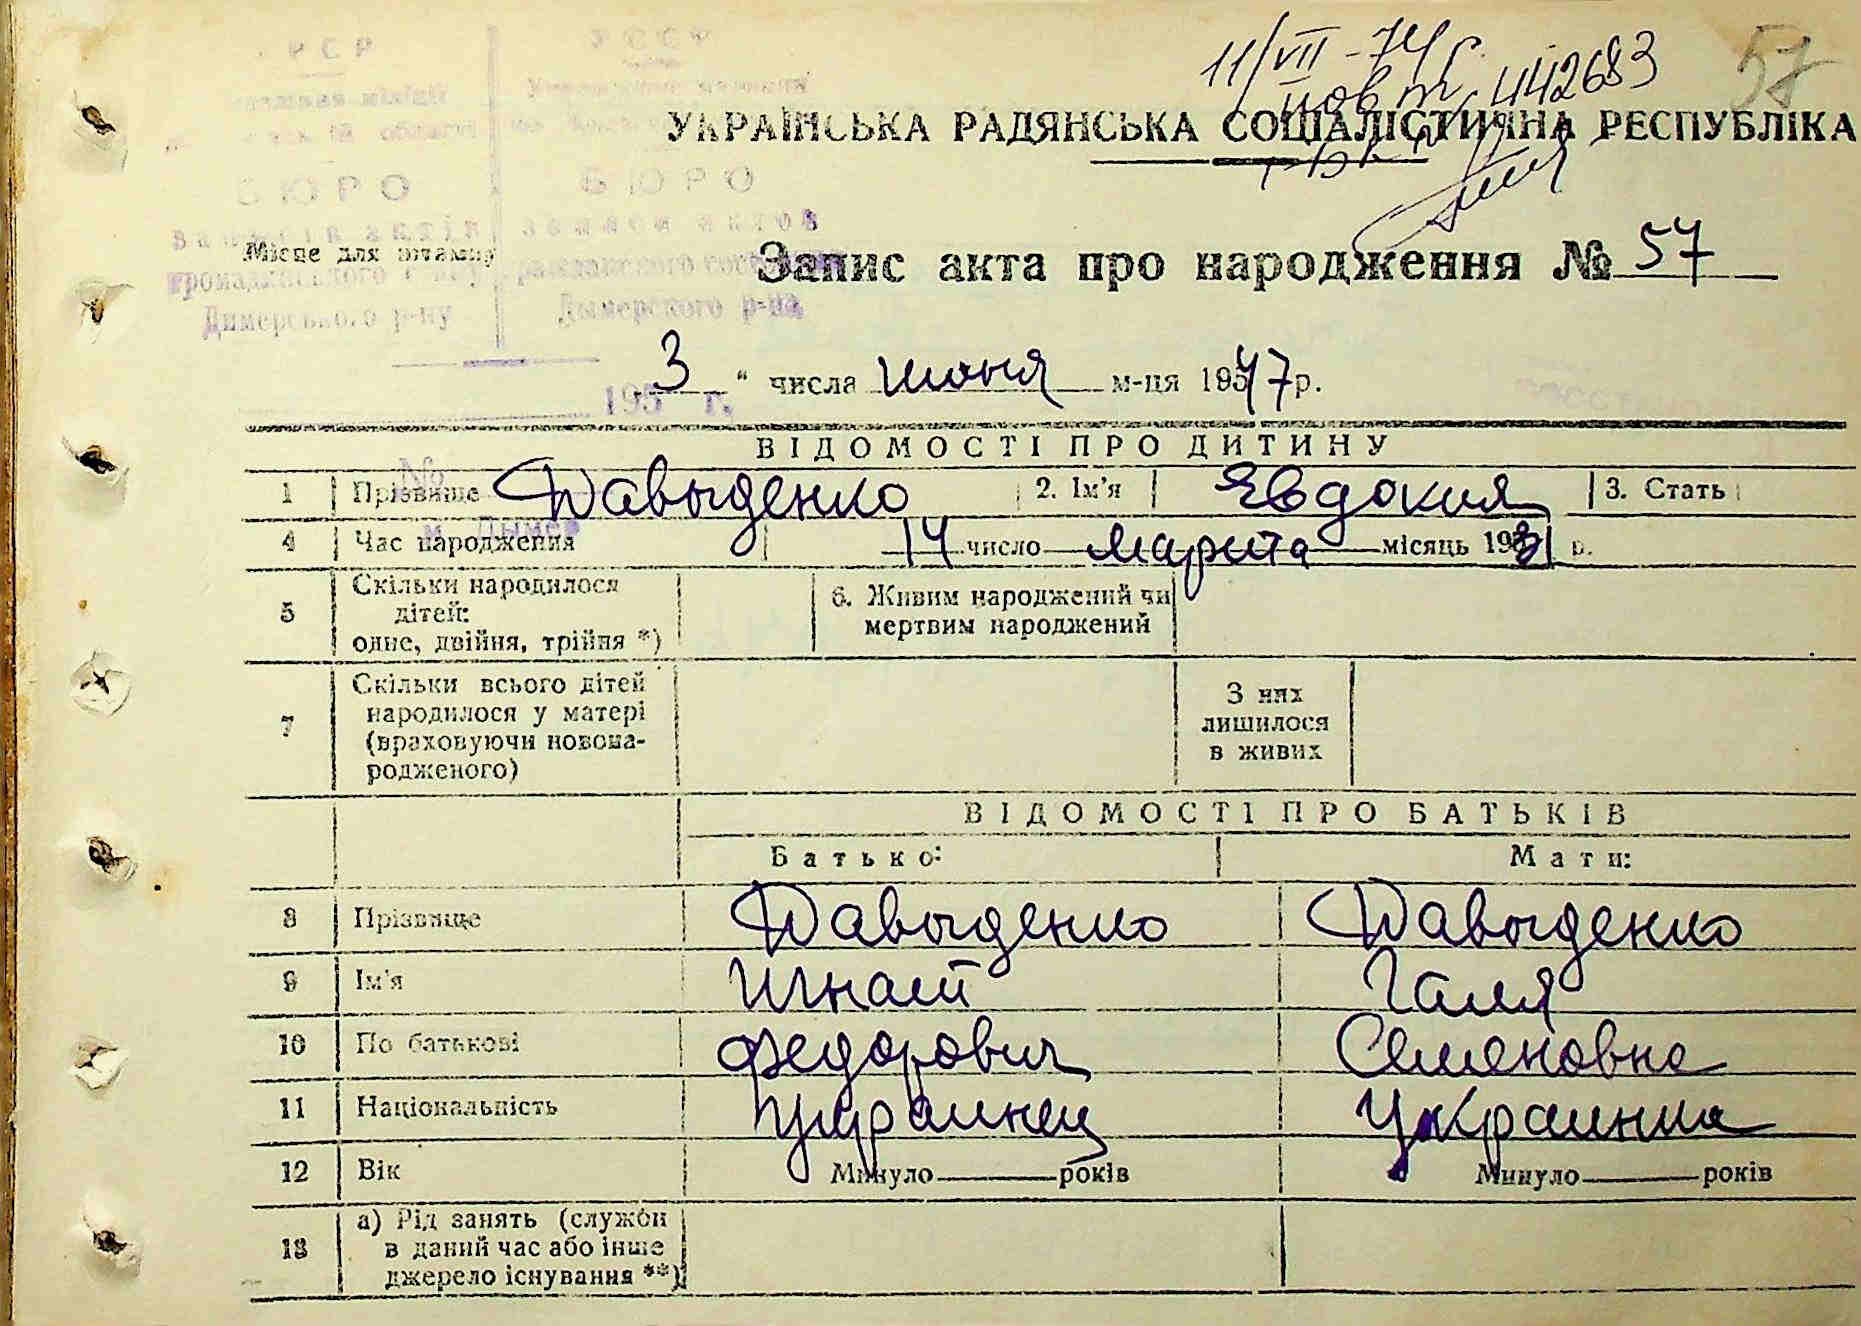 11/VII-74 г.
повт. 442683
57
УКРАЇНСЬКА РАДЯНСЬКА СОЦІАЛІСТИЧНА РЕСПУБЛІКА
УССР
БЮРО БЮРО
записи актов
Місце для штампу
Запис акта про народження № 57
громадянського гражданского
Димерського р-ну Дымерского р-на
3 " числа июня м-ця 1947 р.
195 г.
ВІДОМОСТІ ПРО ДИТИНУ
№
1 Прізвище Давыденко 2. Ім'я Евдокия 3. Стать
м. Дымер
4 Час народження 14 число марта місяць 1931 р.
5 Скільки народилося дітей: одне, двійня, трійня *)
6. Живим народжений чи мертвим народжений
7 Скільки всього дітей народилося у матері (враховуючи новонародженого)
З них лишилося в живих
ВІДОМОСТІ ПРО БАТЬКІВ
Батько: Мати:
8 Прізвище Давыденко Давыденко
9 Ім'я Игнат Галя
10 По батькові Федорович Семеновна
11 Національність Украинец Украинка
12 Вік Минуло років Минуло років
13 а) Рід занять (служби в даний час або інше джерело існування **)